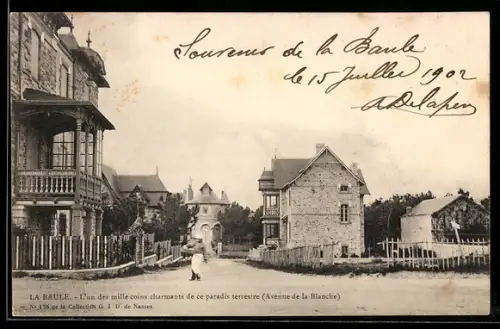 Souvenir de la Baule
le 15 Juillet 1902
LA BAULE. - L'un des mille coins charmants de ce paradis terrestre (Avenue de la Blanche)
No 136 de la Collection G. I. D. de Nantes